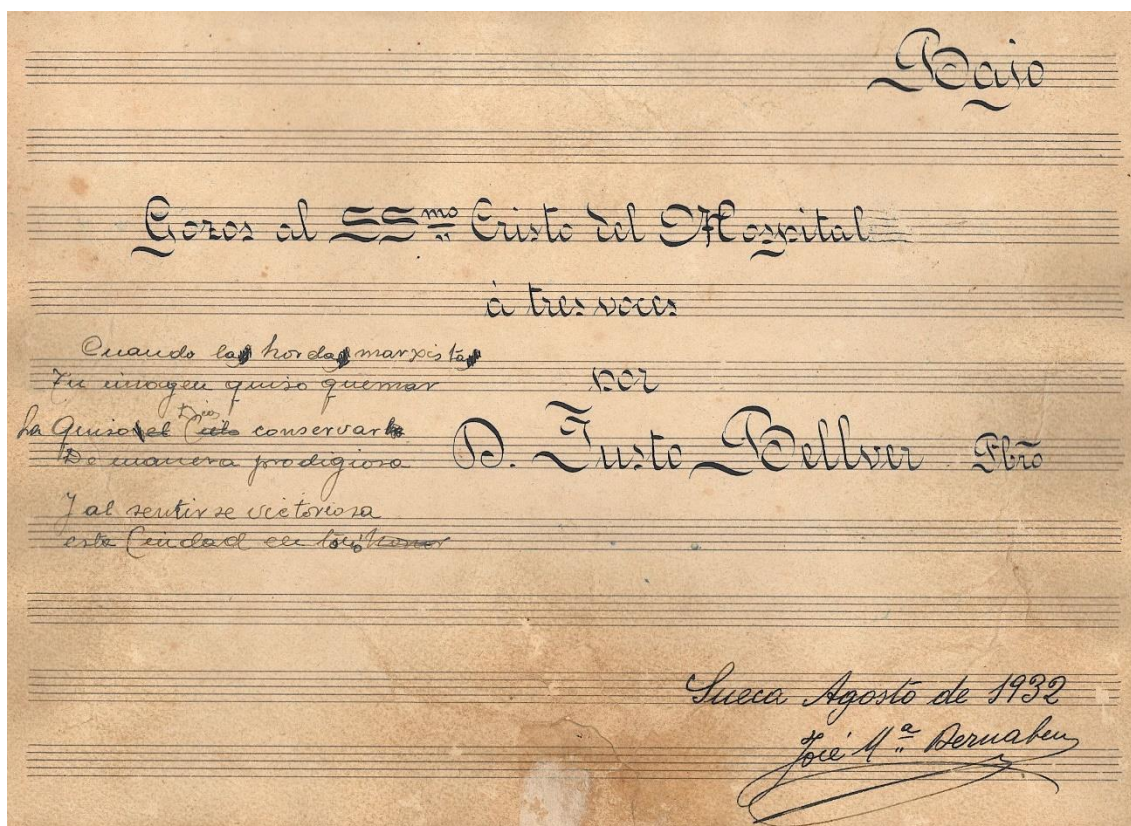 Bajo
Gozos al SSmo Cristo del Hospital
à tres voces
por
D. Justo Bellver Pbro
Cuando la horda marxista
Tu imagen quiso quemar
La quiso Dios conservar
De manera prodigiosa
Y al sentirse victoriosa
esta Ciudad en
Sueca Agosto de 1932
José Mª Bernabeu